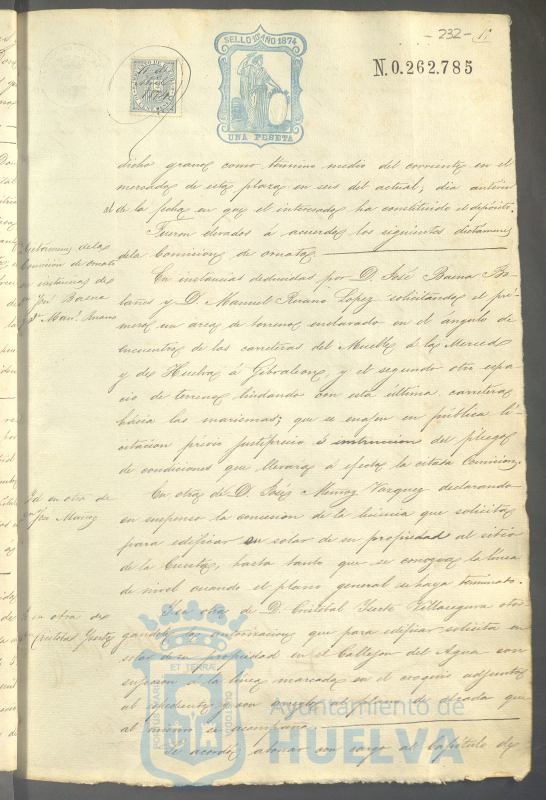 232
SELLO 10º AÑO 1874
UNA PESETA
N.0.262.785
dicho grano como término medio del corriente en el
mercado de esta plaza en seis del actual, dia anterior
al de la fecha en que el interesado ha constituido el depósito.
Fueron elevados á acuerdo los siguientes dictámenes
de la Comision de ornato
Dictamenes de la
Comision de Ornato
en instancias de
Dn. José Baena
y Dn. Manl. Rivano
En instancias deducidas por D. José Baena Bo-
laños y D. Manuel Lopez solicitando el pri-
mero un area de terreno enclavado en el ángulo de
encuentro de las carreteras del Muelle á la Merced
y de Huelva á Gibraleon, y el segundo otro espa-
cio de terreno lindando con esta última carretera
hácia las marismas; que se enagen en pública li-
citacion previo justiprecio é instruccion del pliego
de condiciones que llevará á efecto la citada Comision.
Id en otra de
Dn José Muñoz
En otra de D. José Muñoz Vazquez declarando
en suspenso la concesion de la licencia que solicita
para edificar en solar de su propiedad al sitio
de la Cuesta, hasta tanto que se conozca la línea
de nivel cuando el plano general se haya terminado.
Id en otra de
Dn Cristobal Yuste
Id en otra de D. Cristobal Yuste Villasegura otor
gandole la autorizacion que para edificar solicita en
solar de su propiedad en el Callejon del Agua con
sugecion á la línea marcada en el croquis adjunto
al espediente y con arreglo al plano de fachada que
al mismo se acompaña.
Se acordó abonar con cargo al Capitulo de
PORTUS MARIS
ET TERRÆ
CUSTODIA
Ayuntamiento de
HUELVA